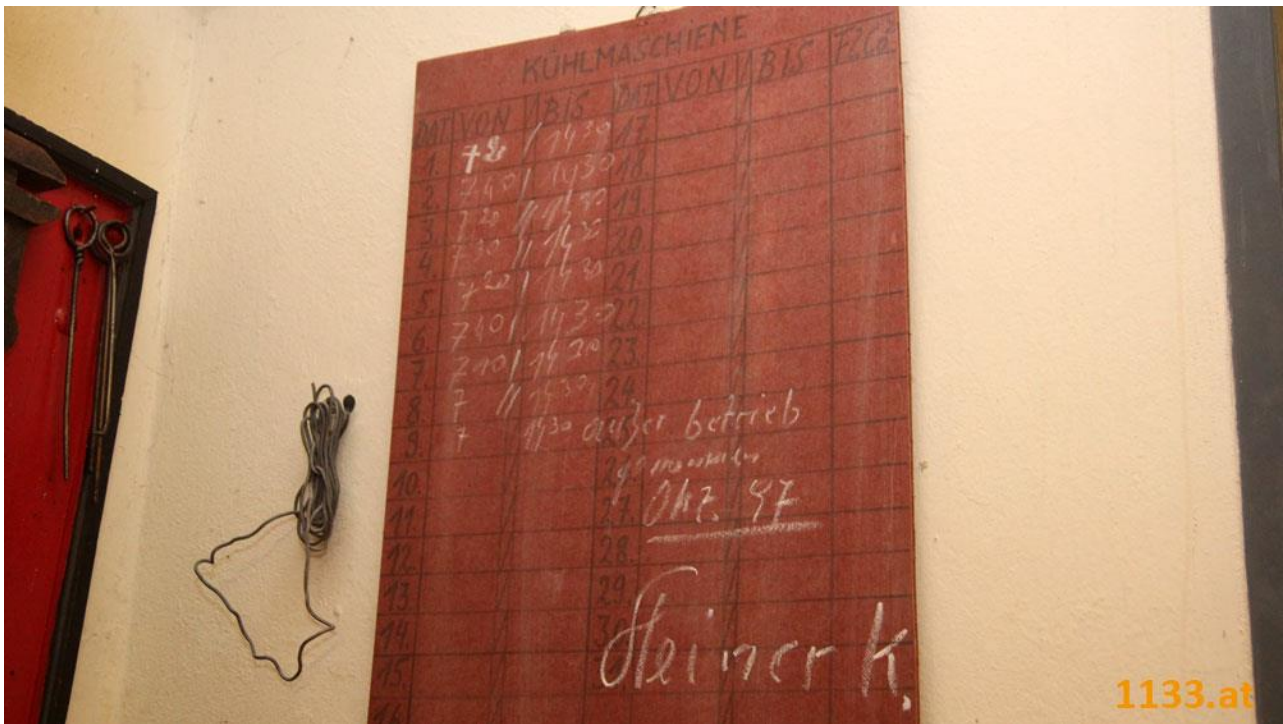 KÜHLMASCHIENE
DAT VON BIS DAT VON BIS
1. 7 20 / 14 30 17
2. 7 40 / 14 30 18
3. 7 20 // 14 30 19.
4. 7 30 // 14 30 20
5. 7 20 / 14 30 21
6. 7 40 / 14 30 22
7. 7 10 / 14 30 23.
8. 7 // 14 30 24
9. 7 14 30 außer betrieb
10.
11 27. Okt. 97
12 28.
13. 29
14 30
15. Steiner K.
16.
1133.at